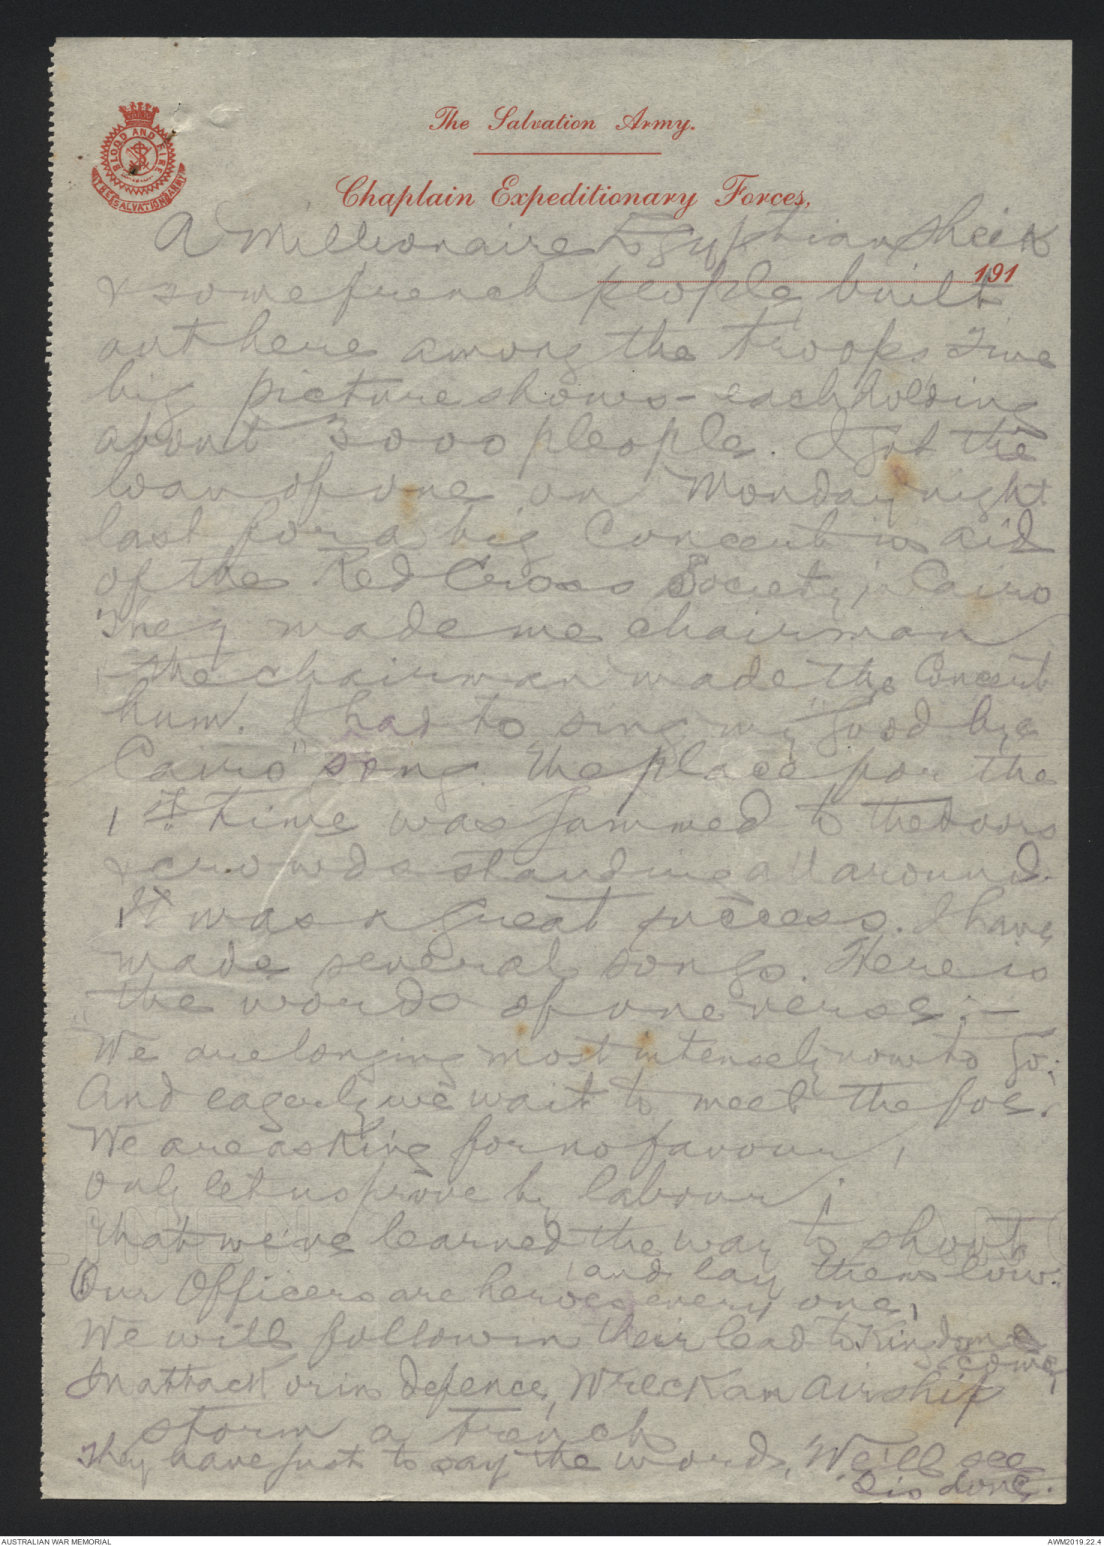 BLOOD AND FIRE
THE SALVATION ARMY
The Salvation Army.
Chaplain Expeditionary Forces,
191
A Millionaire Egyptian Sheik
& some french people, built
out here among the troops five
big picture shows - each holding
about 3000 pleople. I got the
loan of one on Monday night
last for a big Concert in aid
of the Red Cross Society, in Cairo
They made me chairman
& the chairman made the Concert
hum. I had to sing my "Good bye
Cairo" song. The place for the
1st time was jammed to the doors
& crowds standing all around.
It was a great success. I have
made several songs. Here is
the words of one verse:-
We are longing most intensely now to go;
And eagerly we wait to meet the foe.
We are asking for no favour,
Only let us prove by labour;
That we've learned the way to shoot
and lay them low.
Our Officers are heroes every one,
We will follow in their lead to Kingdom
come,
In attack or in defence, Wreck an airship
storm a trench
They have just to say the word, We'll see
its done.
AUSTRALIAN WAR MEMORIAL
AWM2019.22.4